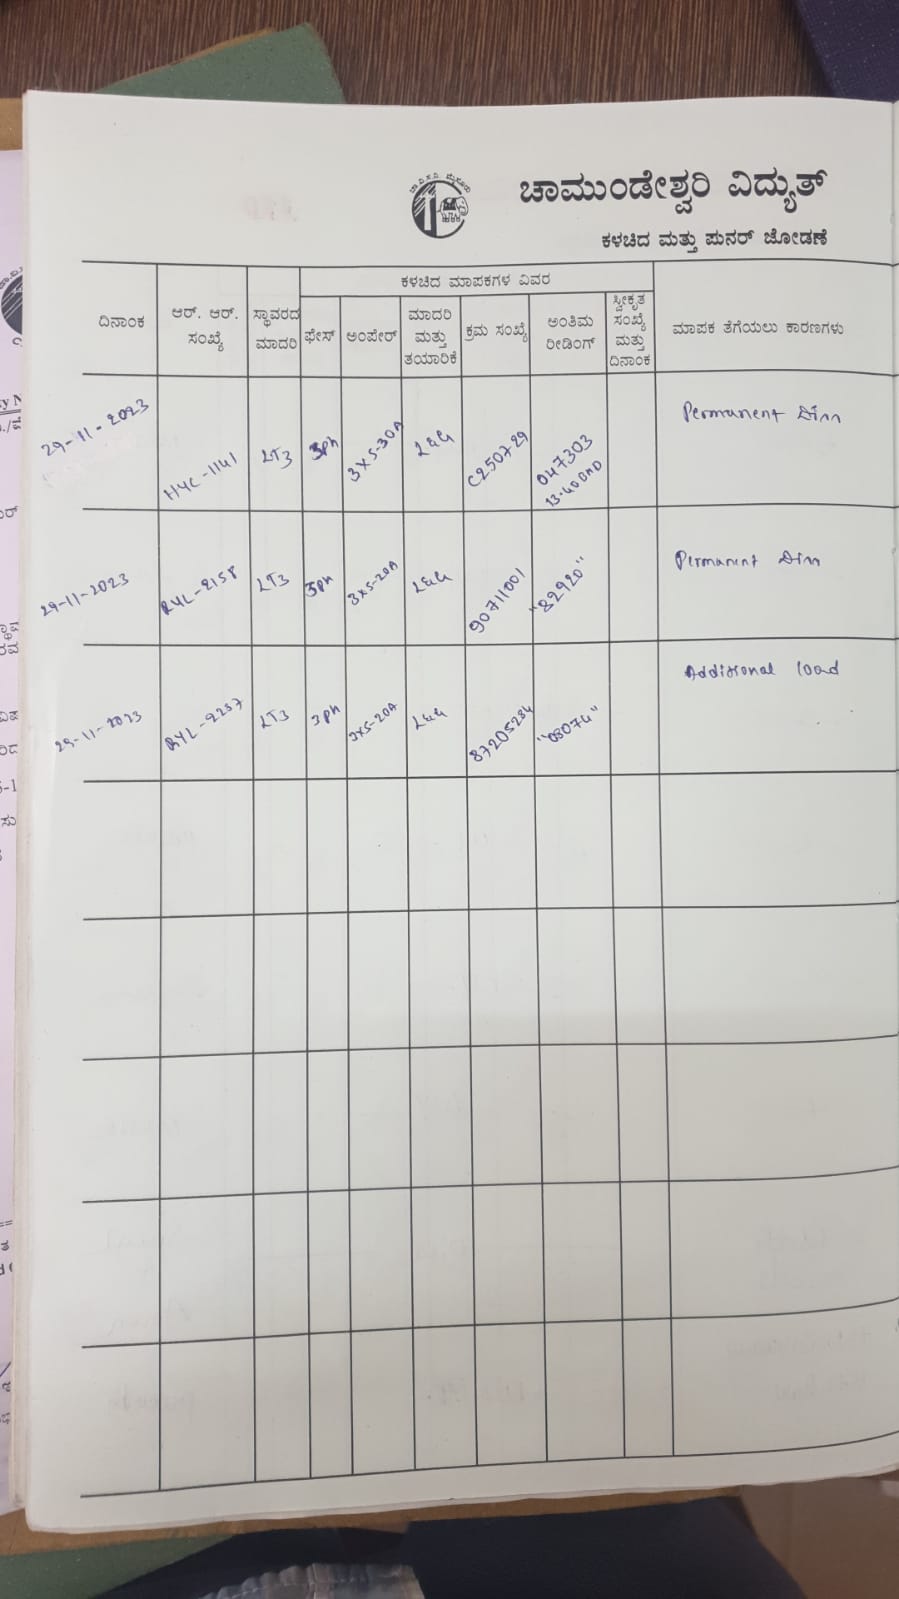 ಚಾ.ವಿ.ಸ.ನಿ. ಮೈಸೂರು
ಚಾಮುಂಡೇಶ್ವರಿ ವಿದ್ಯುತ್
ಕಳಚಿದ ಮತ್ತು ಪುನರ್ ಜೋಡಣೆ
ಕಳಚಿದ ಮಾಪಕಗಳ ವಿವರ
ದಿನಾಂಕ ಆರ್. ಆರ್. ಸಂಖ್ಯೆ ಸ್ಥಾವರದ ಮಾದರಿ ಫೇಸ್ ಅಂಪೇರ್ ಮಾದರಿ ಮತ್ತು ತಯಾರಿಕೆ ಕ್ರಮ ಸಂಖ್ಯೆ ಅಂತಿಮ ರೀಡಿಂಗ್ ಸ್ವೀಕೃತ ಸಂಖ್ಯೆ ಮತ್ತು ದಿನಾಂಕ ಮಾಪಕ ತೆಗೆಯಲು ಕಾರಣಗಳು
29-11-2023 HYL-1141 LT3 3ph 3x5-30A L&G C250729 047303 Permanent
29-11-2023 RYL-2158 LT3 3ph 3x5-20A L&G 90711001 "82920" Permanent
29-11-2023 RYL-2237 LT3 3ph 3x5-20A L&G 87205234 "08074" Additional load